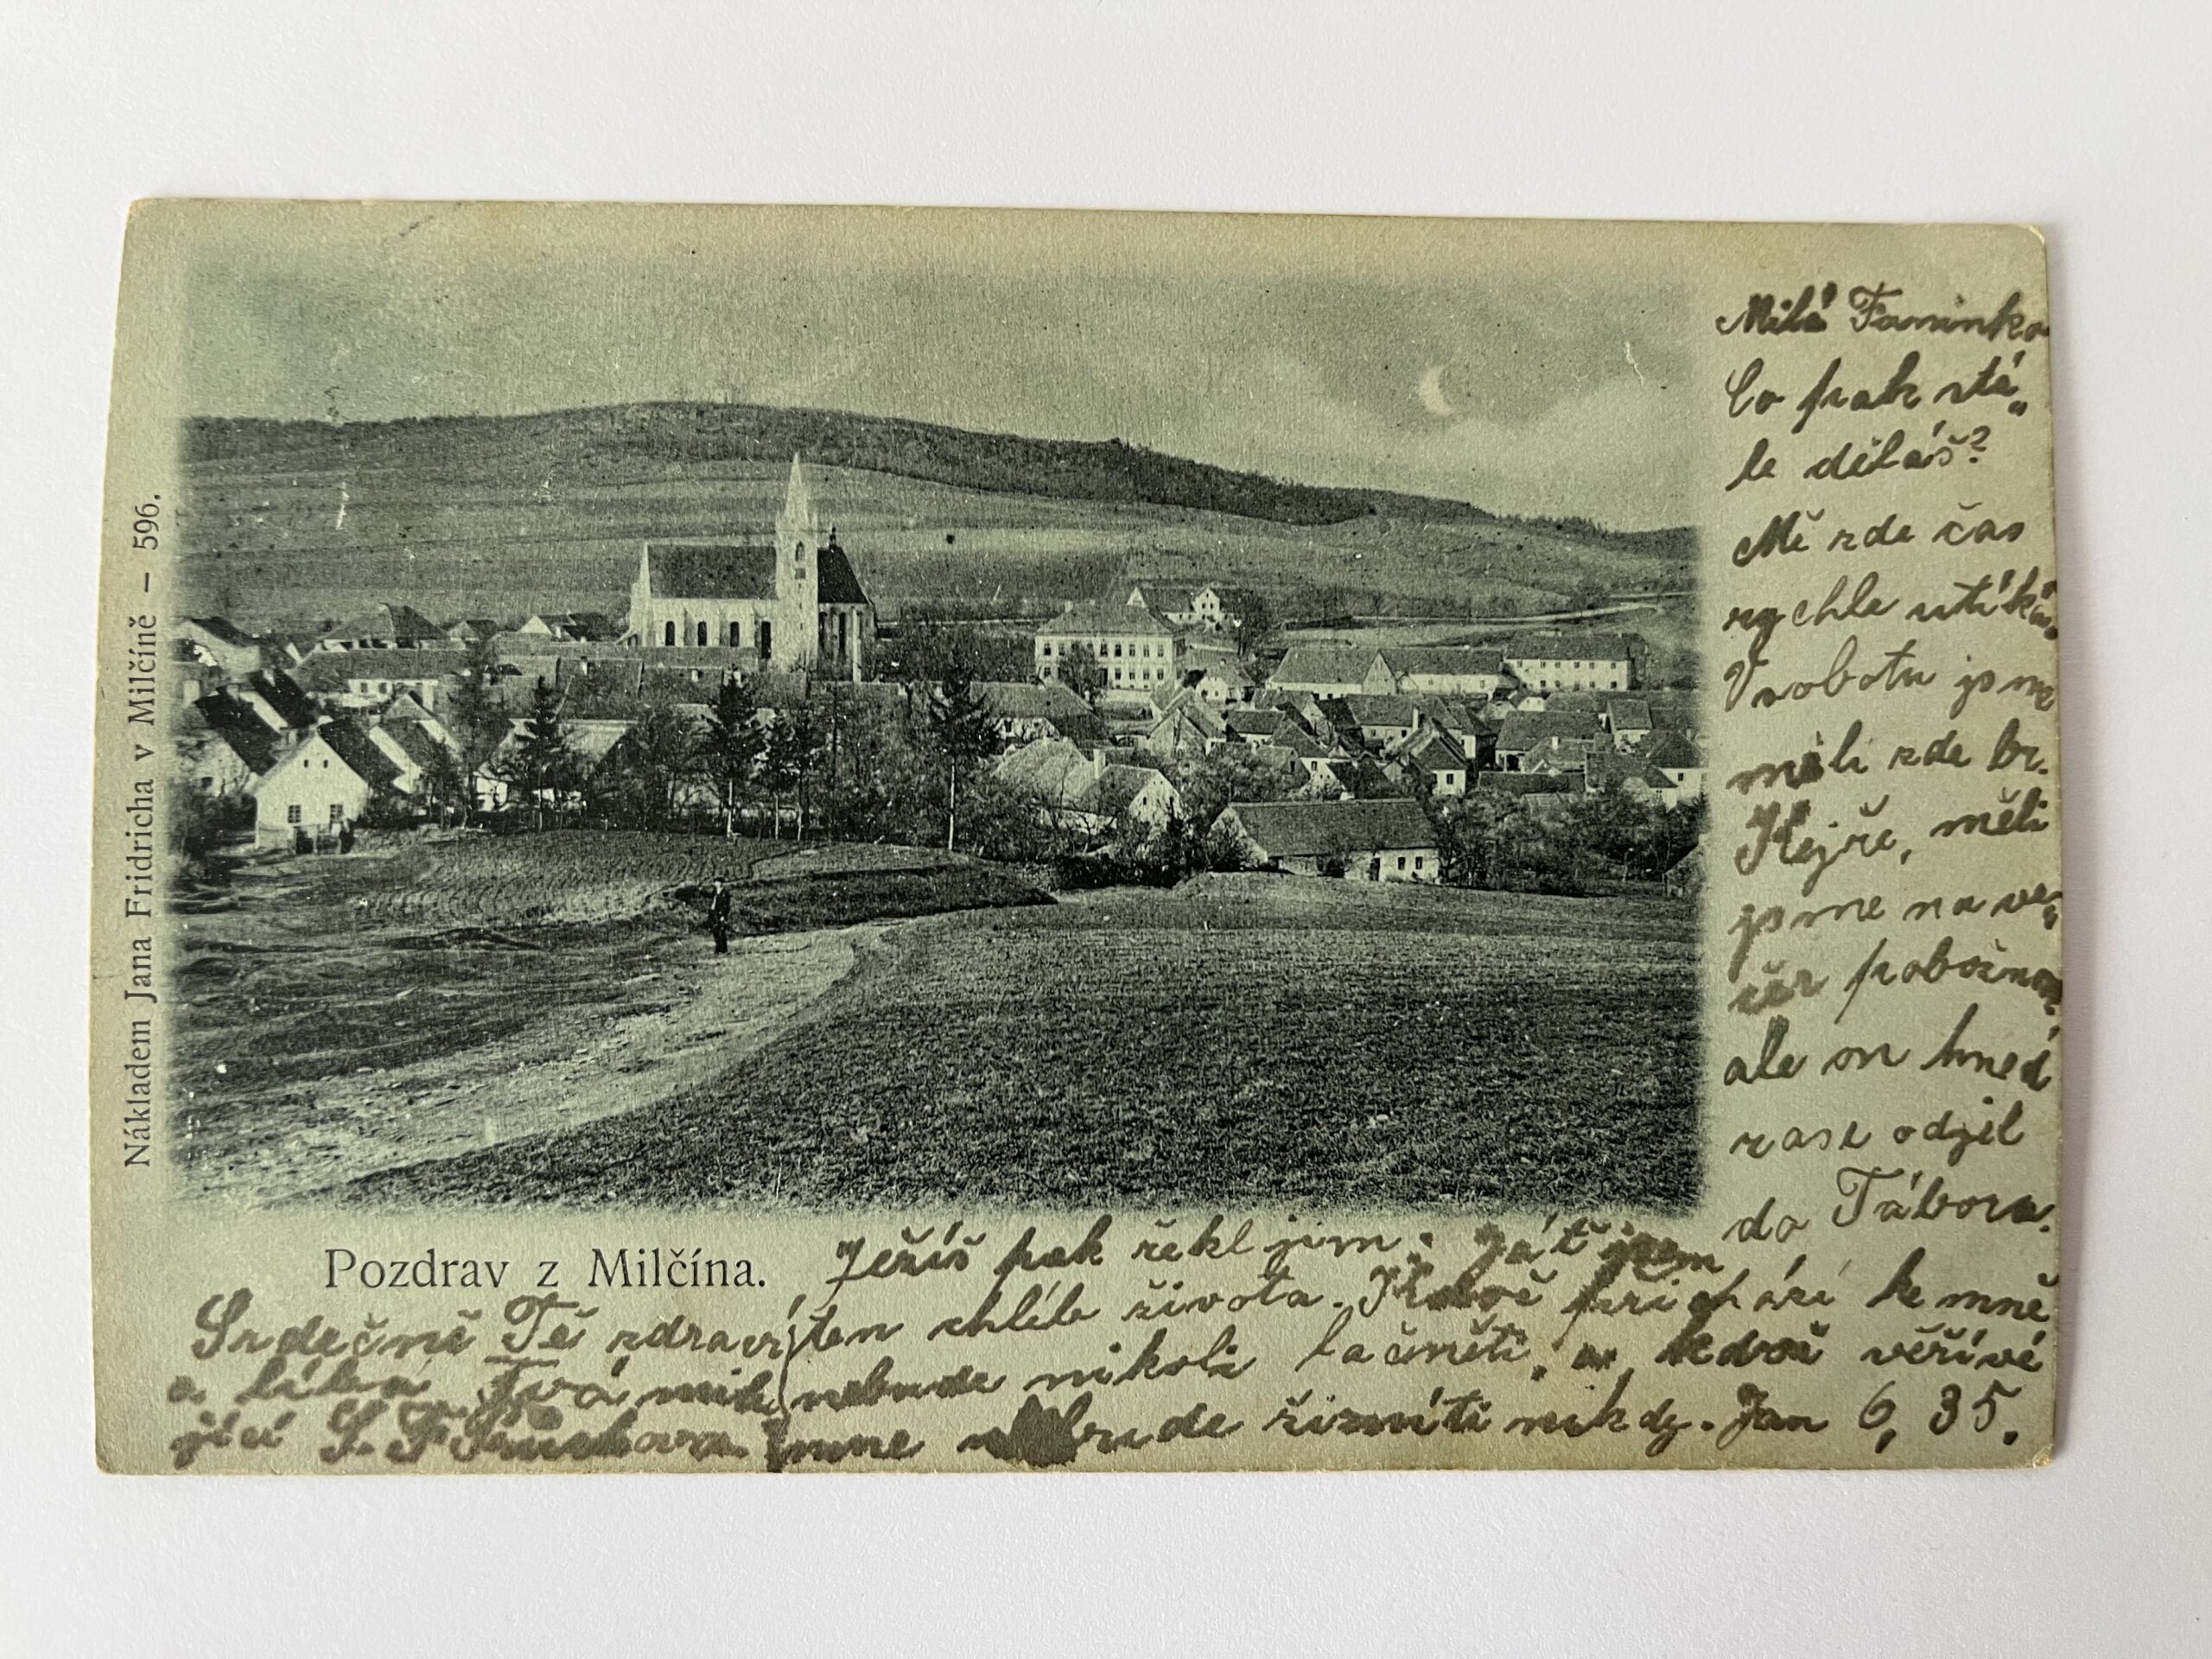 Nákladem Jana Fridricha v Milčíně – 596.
Milá Faninko
Co pak stá„
le děláš?
Mě zde čas
rychle utíká.
V sobotu jsme
měli zde br.
Hejře, měli
jsme na ve„
čer pobožnost,
ale on hned
zase odjel
do Tábora.
Pozdrav z Milčína.
Ježíš pak řekl jim: Já ť jsem
ten chléb života. Kdož přichází ke mně
nebude nikoli lačněti, a kdož věří ve
mne nebude žízniti nikdy. Jan 6, 35.
Srdečně Tě zdraví
a líbá Tvá milu
jící S. F.